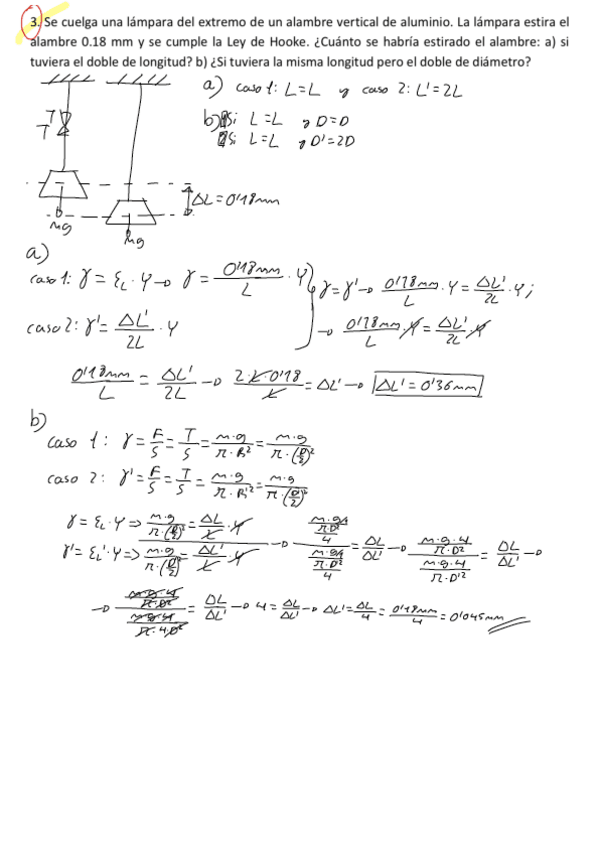 3. Se cuelga una lámpara del extremo de un alambre vertical de aluminio. La lámpara estira el
alambre 0.18 mm y se cumple la Ley de Hooke. ¿Cuánto se habría estirado el alambre: a) si
tuviera el doble de longitud? b) ¿Si tuviera la misma longitud pero el doble de diámetro?
a) caso 1: L=L y caso 2: L'=2L
b) 1Si L=L y D=D
2Si L=L y D'=2D
T
T
ΔL=0'18mm
mg
mg
a)
caso 1: γ = ε_L · Y → γ = 0'18mm/L · Y
γ=γ' → 0'18mm/L · Y = ΔL'/2L · Y;
caso 2: γ' = ΔL'/2L · Y
→ 0'18mm/L · Y = ΔL'/2L · Y
0'18mm/L = ΔL'/2L → 2·L·0'18/L = ΔL' → ΔL' = 0'36mm
b)
caso 1: γ = F/S = T/S = m·g/π·R² = m·g/π·(D/2)²
caso 2: γ' = F/S = T/S = m·g/π·R'² = m·g/π·(D'/2)²
γ = ε_L · Y ⇒ m·g/π·(D/2)² = ΔL/L · Y
γ' = ε_L' · Y ⇒ m·g/π·(D'/2)² = ΔL'/L · Y
→ (m·g/(π·D²/4))/(m·g/(π·D'²/4)) = ΔL/ΔL' → (m·g·4/π·D²)/(m·g·4/π·D'²) = ΔL/ΔL' →
→ (m·g·4/π·D²)/(m·g·4/π·4D²) = ΔL/ΔL' → 4 = ΔL/ΔL' → ΔL' = ΔL/4 = 0'18mm/4 = 0'045mm